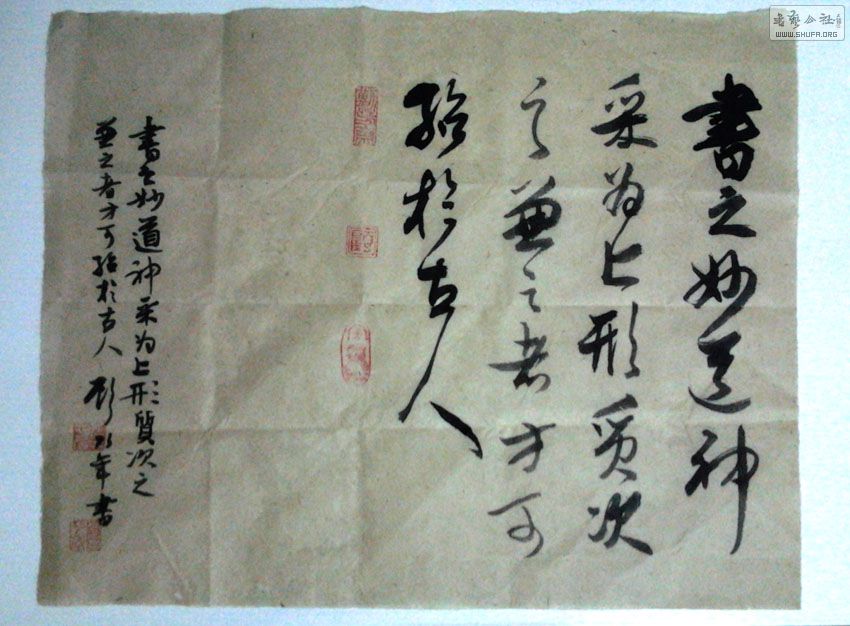 書之妙道神
采为上形质次
之兼之者方可
紹於古人
書之妙道神采为上形質次之
兼之者方可紹於古人 年書
書藝公社
WWW.SHUFA.ORG